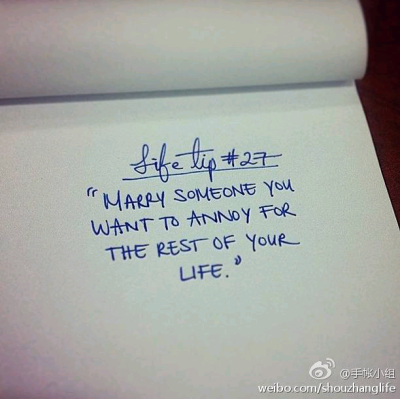 Life tip #27
"MARRY SOMEONE YOU
WANT TO ANNOY FOR
THE REST OF YOUR
LIFE."
@手帐小组
weibo.com/shouzhanglife